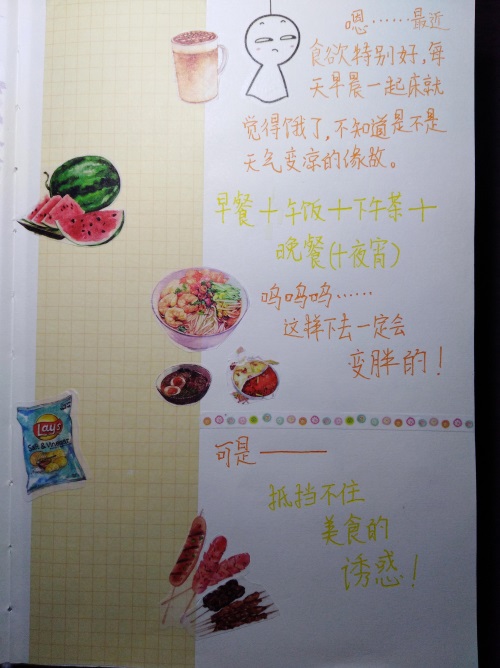 嗯……最近
食欲特别好,每
天早晨一起床就
觉得饿了,不知道是不是
天气变凉的缘故。
早餐+午饭+下午茶+
晚餐(+夜宵)
呜呜呜……
这样下去一定会
变胖的!
Lay's
Salt & Vinegar
可是——
抵挡不住
美食的
诱惑!